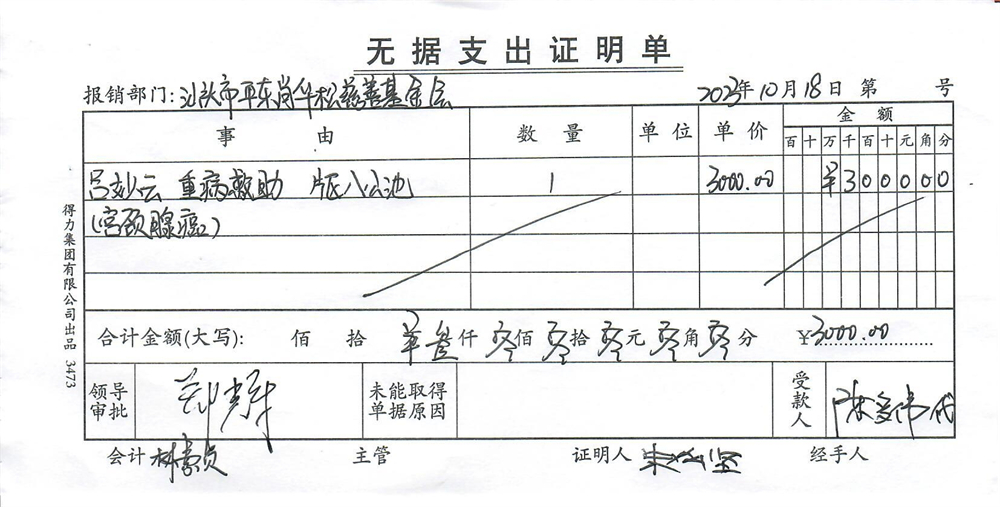 无据支出证明单
报销部门: 汕头市平东肖华松慈善基金会 2023年10月18日 第 号
事由 数量 单位 单价 金额
百 十 万 千 百 十 元 角 分
吕妙云 重病救助 1 3000.00 ¥ 3 0 0 0 0 0
(宫颈腺癌)
合计金额(大写): 佰 拾 叁仟 零佰 零拾 零元 零角 零分 ¥3000.00
领导审批 未能取得单据原因 受款人 代
会计 主管 证明人 经手人
得力集团有限公司出品 3473